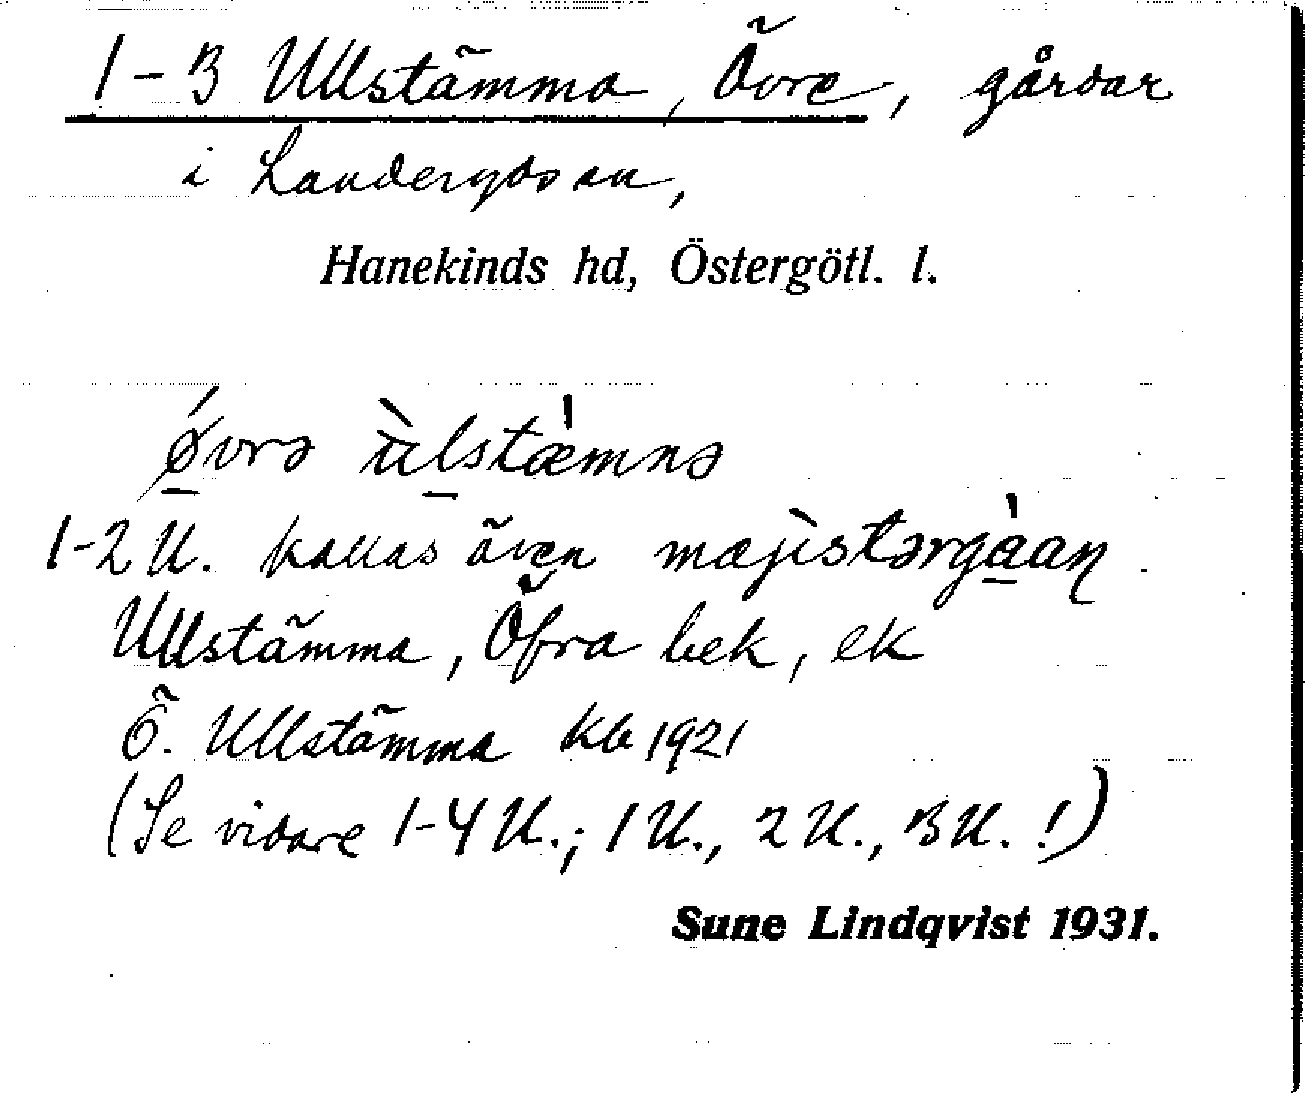 1-3 Ullstämma, Övre, gårdar
i Landeryds sn,
Hanekinds hd, Östergötl. l.
ǿvrə ùlstæ̀mnə
1-2 U. kallas även mæjìstərgɑ̀ɑɳ.
Ullstämma, Öfra bek, ek
Ö. Ullstämma kb 1921
(Se vidare 1-4 U.; 1 U., 2 U., 3 U. !)
Sune Lindqvist 1931.